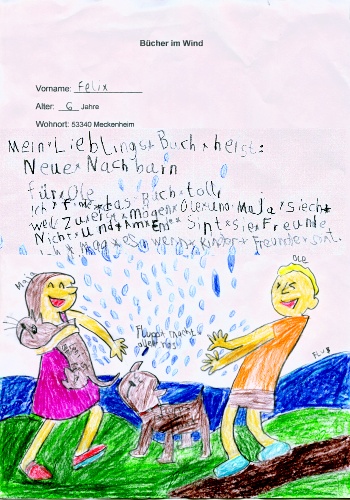 Bücher im Wind
Vorname: Felix
Alter: 6 Jahre
Wohnort: 53340 Meckenheim
Mein Lieblings Buch heist:
Neue Nachbarn
für Ole
Ich finde das Buch toll
weil Zuerst mögen Ole und Maja siech
Nicht und Am Ende Sint sie Freunde
Ich mag es wenn Kinder Freunde sint.
Maja
Ole
macht
alles nas
Fluß